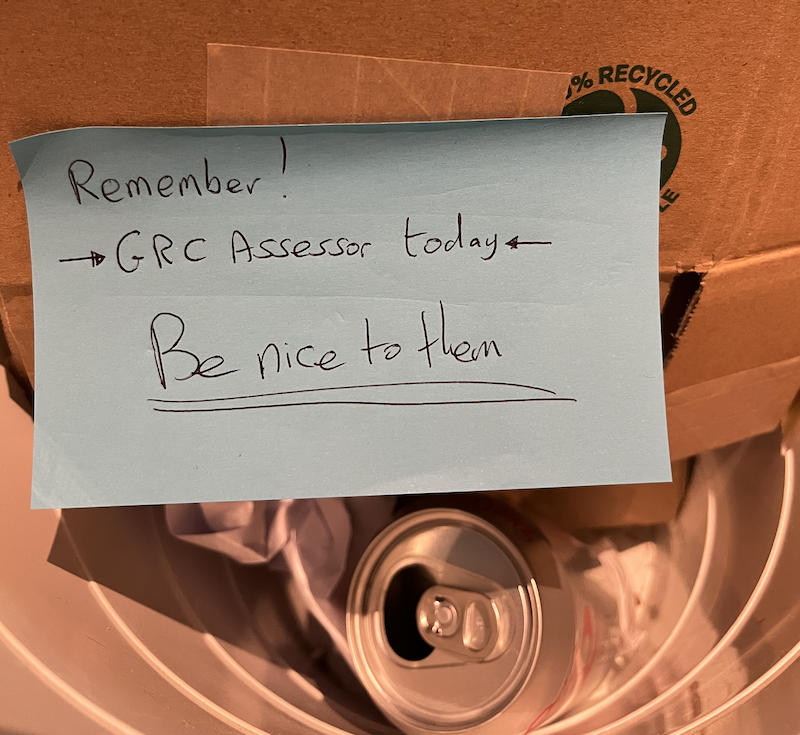 % RECYCLED
LE
Remember!
→ GRC Assessor today ←
Be nice to them